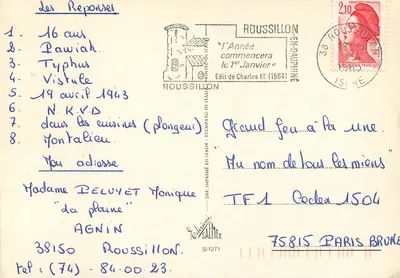 Les Réponses
1 - 16 ans
2 - Pawiak.
3 - Typhus
4 - Vistule
5 - 19 avril 1943
6 - N.K.V.D
7 - dans les cuisines (plongeur)
8 - Montalieu.
Mon adresse
Madame BELUYET Monique
"La plaine"
AGNIN
38150 Roussillon.
tel: (74) - 84.00 23.
ROUSSILLON
EN-DAUPHINE
"l'Année
commencera
le 1er Janvier"
Edit de Charles IX (1564)
ROUSSILLON
38 ROUSSILLON
ISERE
2,10
S/1271
Grand jeu à la une.
"Au nom de tous les miens"
TF1 Cedex 1504
75815 PARIS BRUNE